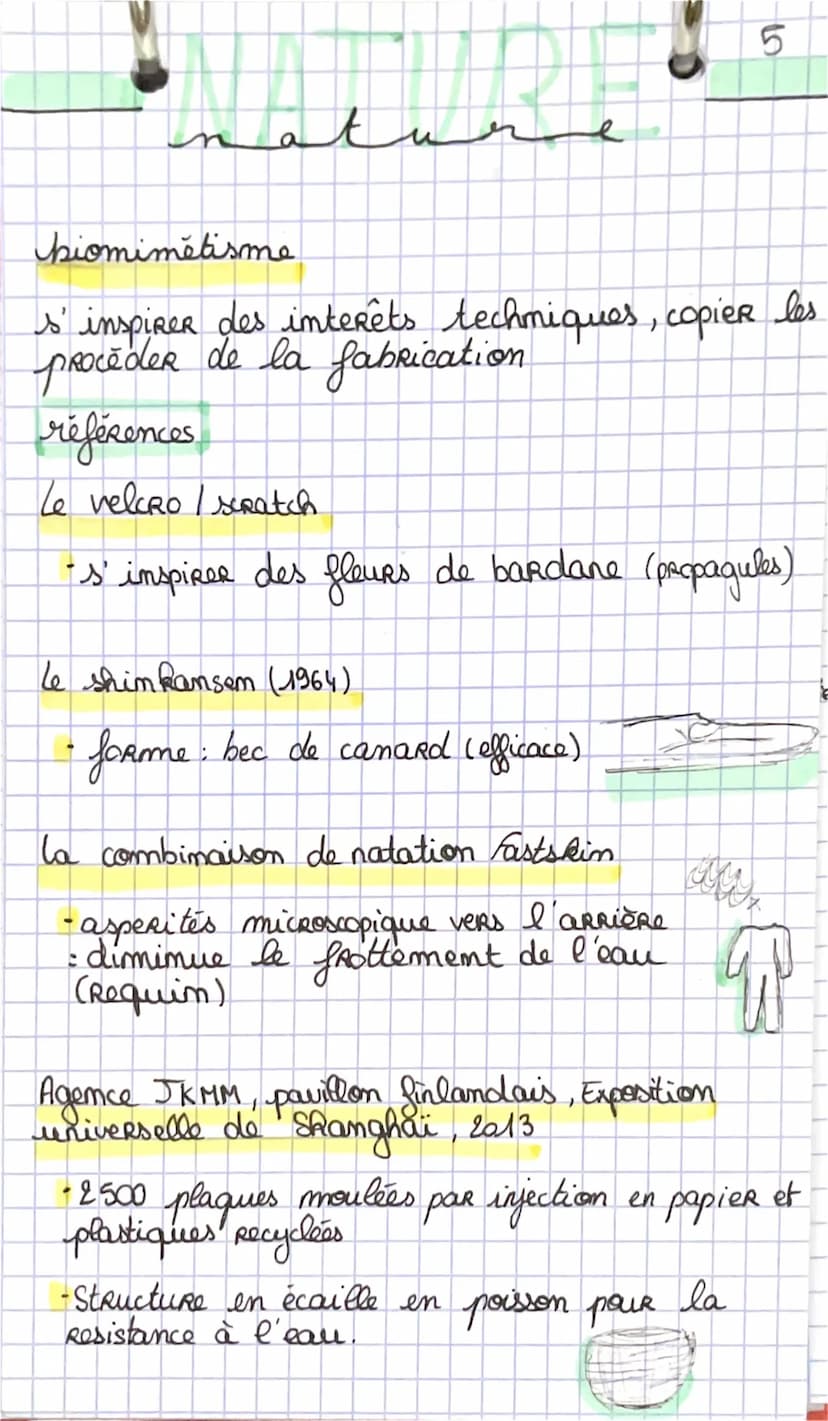 5
NATURE
nature
biomimétisme
s'inspirer des interêts techniques, copier les
procéder de la fabrication
références
Le velcro / scratch
- s'inspirer des fleurs de bardane (propagules)
Le shinkansen (1964)
- forme : bec de canard (efficace)
La combinaison de natation Fastskin
- asperités microscopique vers l'arrière
: diminue le frottement de l'eau
(Requin)
Agence JKMM, pavillon finlandais, Exposition
universelle de Shanghaï, 2013
- 2500 plaques moulées par injection en papier et
plastiques recyclées
- Structure en écaille en poisson pour la
resistance à l'eau.